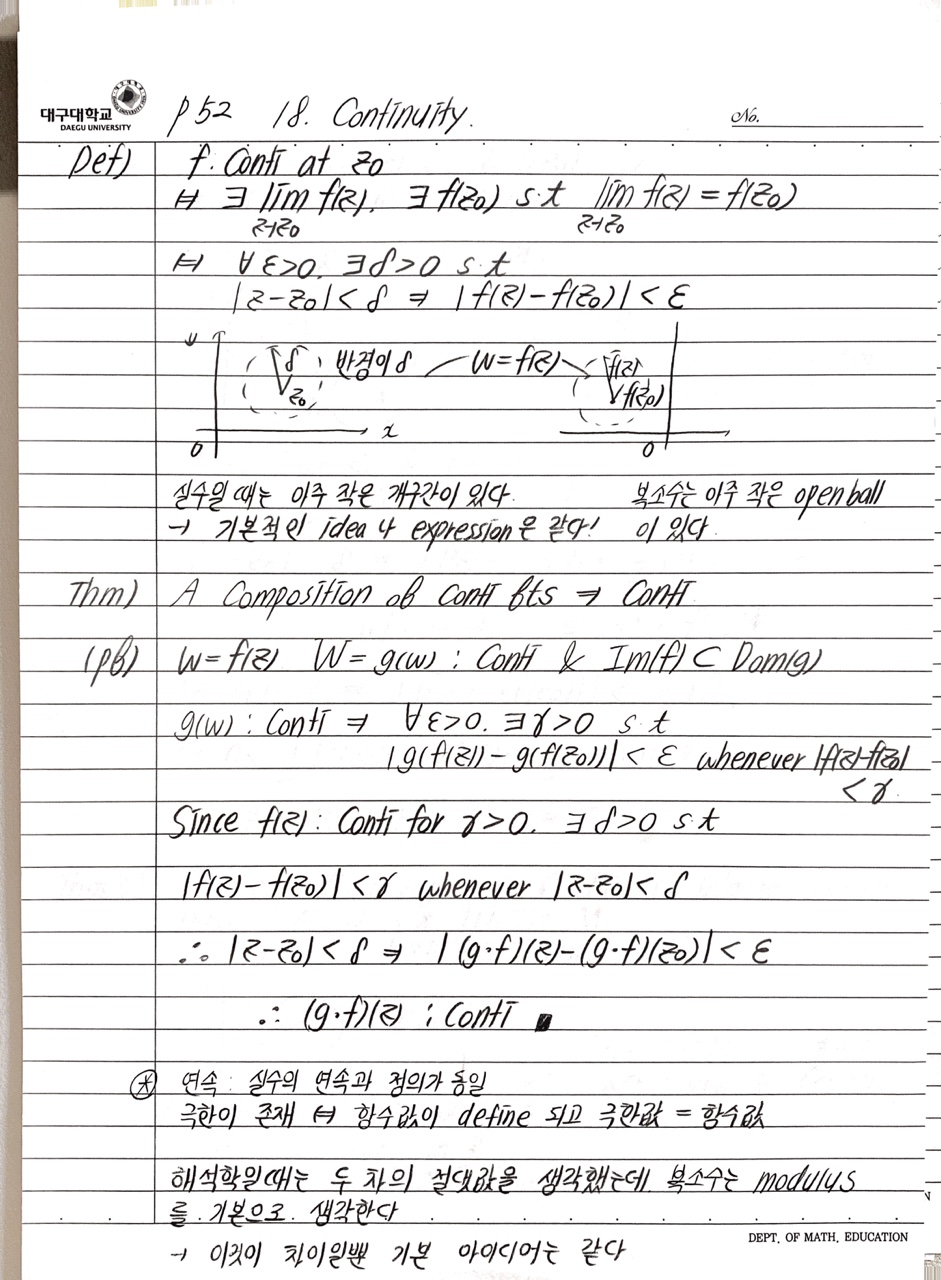 대구대학교
DAEGU UNIVERSITY
p 52 18. Continuity.
No.
Def) f. Conti at z₀
⇔ ∃ lim f(z). ∃ f(z₀) s.t lim f(z) = f(z₀)
z→z₀ z→z₀
⇔ ∀ε>0. ∃δ>0 s.t
|z-z₀| < δ ⇒ |f(z)-f(z₀)| < ε
y δ 반경이 δ w=f(z) f(z)
z₀ f(z₀)
x
0 0
실수일 때는 아주 작은 개구간이 있다. 복소수는 아주 작은 open ball
→ 기본적인 idea 나 expression은 같다! 이 있다.
Thm) A Composition of conti fts ⇒ Conti
(pf) w=f(z) W=g(w) : Conti & Im(f) ⊂ Dom(g)
g(w) : Conti ⇒ ∀ε>0. ∃γ>0 s.t
|g(f(z))-g(f(z₀))| < ε whenever |f(z)-f(z₀)|
< γ.
Since f(z) : Conti for γ>0. ∃δ>0 s.t
|f(z)-f(z₀)| < γ whenever |z-z₀| < δ
∴ |z-z₀| < δ ⇒ |(g·f)(z)-(g·f)(z₀)| < ε
∴ (g·f)(z) : Conti ∎
⊛ 연속 : 실수의 연속과 정의가 동일
극한이 존재 ⇔ 함수값이 define 되고 극한값 = 함수값
해석학일때는 두 차의 절댓값을 생각했는데. 복소수는 modulus
를 기본으로 생각한다
→ 이것이 차이일뿐 기본 아이디어는 같다
DEPT. OF MATH. EDUCATION